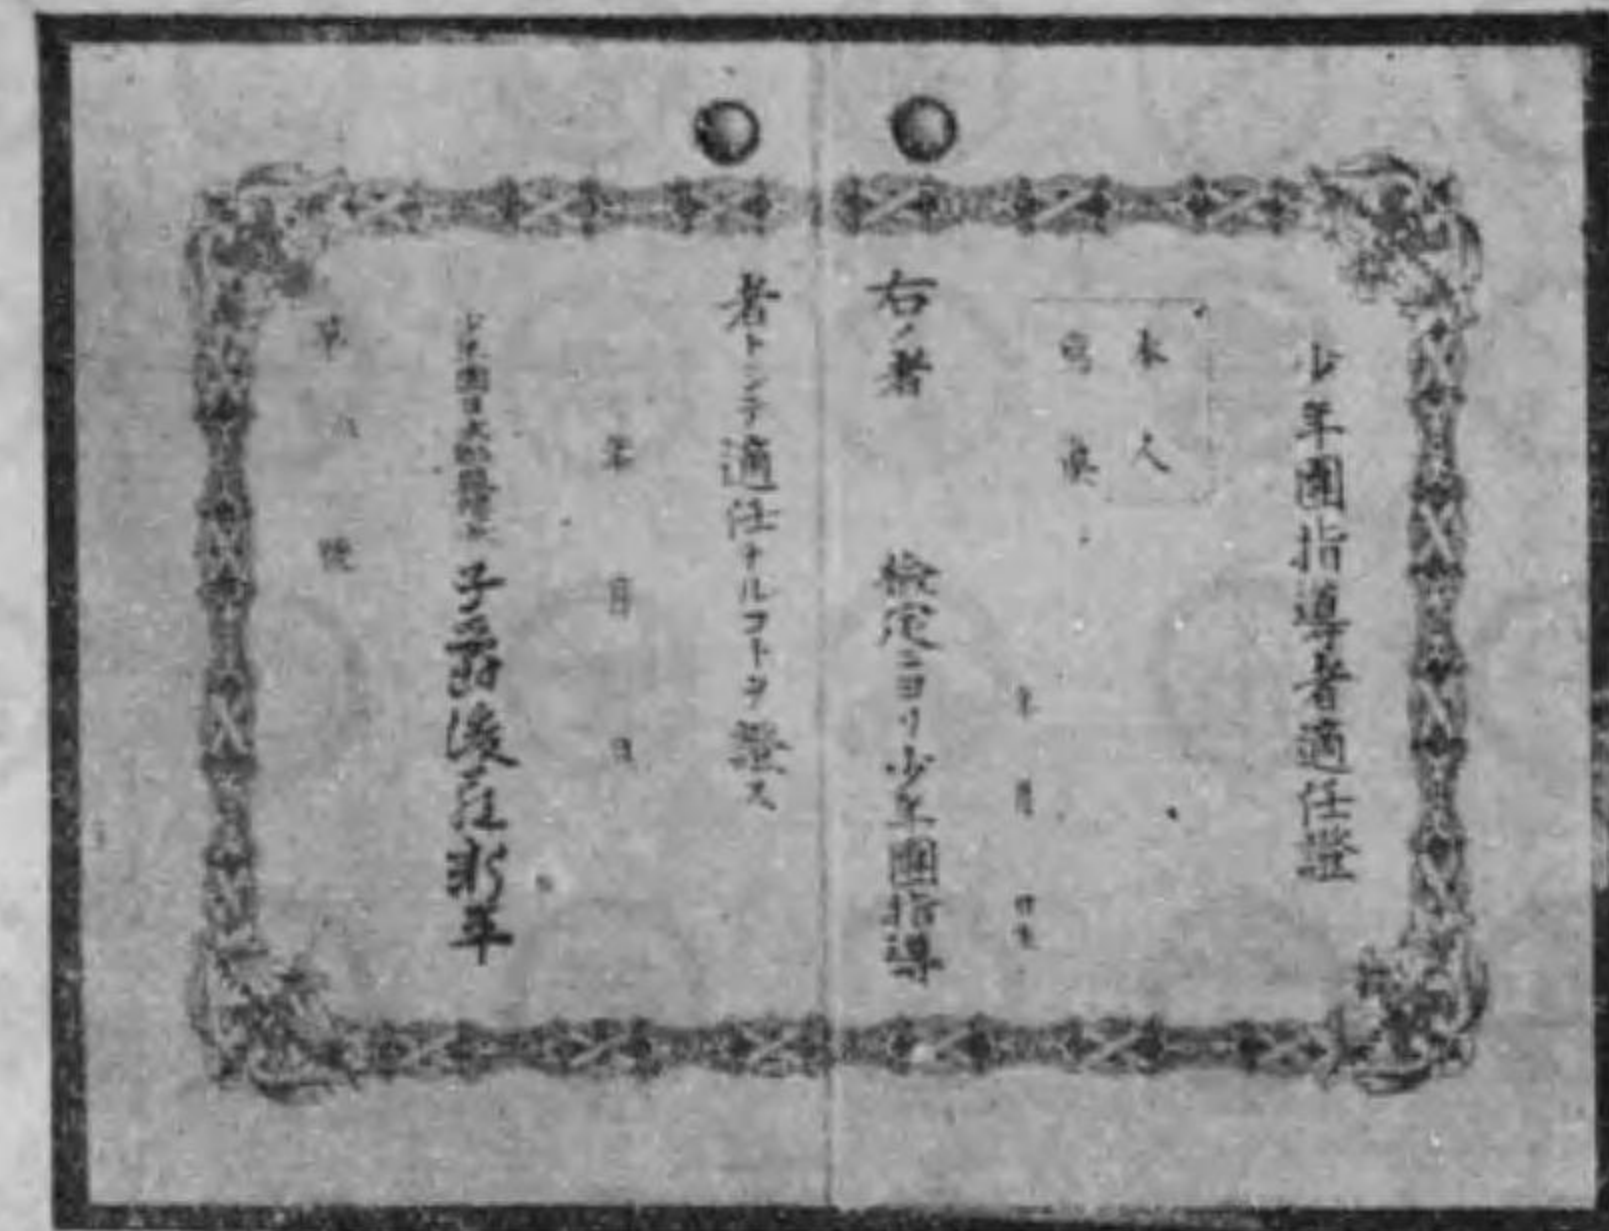 少年團指導者適任證
本人
寫眞
年 月 日生
右ノ者 檢定ニヨリ少年團指導
者トシテ適任ナルコトヲ證ス
年 月 日
少年團日本聯盟總裁 子爵後藤新平
第 號